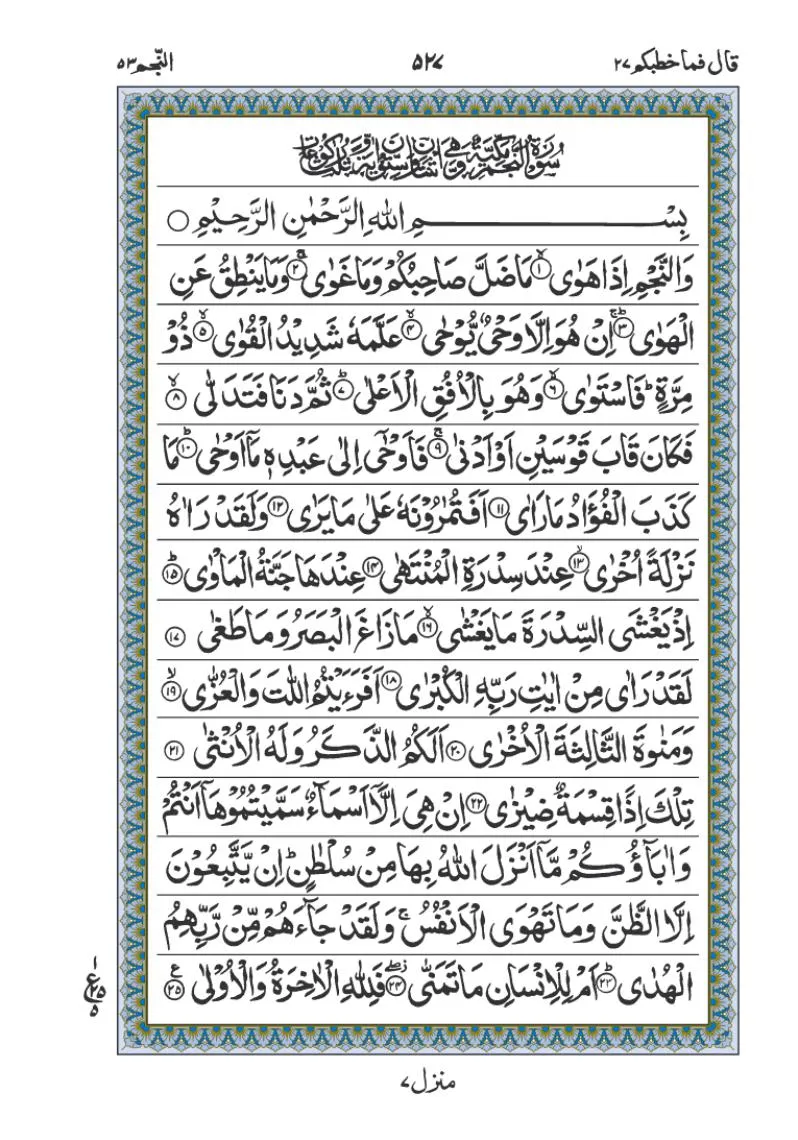 قال فما خطبكم ٢٧ ٥٢٧ النّجم ٥٣
سُوْرَةُ النَّجْمِ مَكِّيَّةٌ وَّهِيَ اثْنَتَانِ وَسِتُّوْنَ اٰيَةً وَّثَلٰثُ رُكُوْعَاتٍ
بِسْمِ اللهِ الرَّحْمٰنِ الرَّحِيْمِ ○
وَالنَّجْمِ اِذَا هَوٰى ۙ﴿١﴾ مَا ضَلَّ صَاحِبُكُمْ وَمَا غَوٰى ۚ﴿٢﴾ وَمَا يَنْطِقُ عَنِ
الْهَوٰى ؕ﴿٣﴾ اِنْ هُوَ اِلَّا وَحْیٌ يُّوْحٰى ۙ﴿٤﴾ عَلَّمَهٗ شَدِيْدُ الْقُوٰى ۙ﴿٥﴾ ذُوْ
مِرَّةٍ ؕ فَاسْتَوٰى ۙ﴿٦﴾ وَهُوَ بِالْاُفُقِ الْاَعْلٰى ؕ﴿٧﴾ ثُمَّ دَنَا فَتَدَلّٰى ۙ﴿٨﴾
فَكَانَ قَابَ قَوْسَيْنِ اَوْ اَدْنٰى ۚ﴿٩﴾ فَاَوْحٰۤى اِلٰى عَبْدِهٖ مَاۤ اَوْحٰى ؕ﴿١٠﴾ مَا
كَذَبَ الْفُؤَادُ مَا رَاٰى ﴿١١﴾ اَفَتُمٰرُوْنَهٗ عَلٰى مَا يَرٰى ﴿١٢﴾ وَلَقَدْ رَاٰهُ
نَزْلَةً اُخْرٰى ۙ﴿١٣﴾ عِنْدَ سِدْرَةِ الْمُنْتَهٰى ﴿١٤﴾ عِنْدَهَا جَنَّةُ الْمَاْوٰى ؕ﴿١٥﴾
اِذْ يَغْشَى السِّدْرَةَ مَا يَغْشٰى ۙ﴿١٦﴾ مَا زَاغَ الْبَصَرُ وَمَا طَغٰى ﴿١٧﴾
لَقَدْ رَاٰى مِنْ اٰيٰتِ رَبِّهِ الْكُبْرٰى ﴿١٨﴾ اَفَرَءَيْتُمُ اللّٰتَ وَالْعُزّٰى ۙ﴿١٩﴾
وَمَنٰوةَ الثَّالِثَةَ الْاُخْرٰى ﴿٢٠﴾ اَلَكُمُ الذَّكَرُ وَلَهُ الْاُنْثٰى ﴿٢١﴾
تِلْكَ اِذًا قِسْمَةٌ ضِيْزٰى ﴿٢٢﴾ اِنْ هِیَ اِلَّاۤ اَسْمَآءٌ سَمَّيْتُمُوْهَاۤ اَنْتُمْ
وَاٰبَآؤُكُمْ مَّاۤ اَنْزَلَ اللهُ بِهَا مِنْ سُلْطٰنٍ ؕ اِنْ يَّتَّبِعُوْنَ
اِلَّا الظَّنَّ وَمَا تَهْوَى الْاَنْفُسُ ۚ وَلَقَدْ جَآءَهُمْ مِّنْ رَّبِّهِمُ
الْهُدٰى ؕ﴿٢٣﴾ اَمْ لِلْاِنْسَانِ مَا تَمَنّٰى ۖ﴿٢٤﴾ فَلِلّٰهِ الْاٰخِرَةُ وَالْاُوْلٰى ﴿٢٥﴾ ع
١ ع ٢٥ ٥
منزل ٧